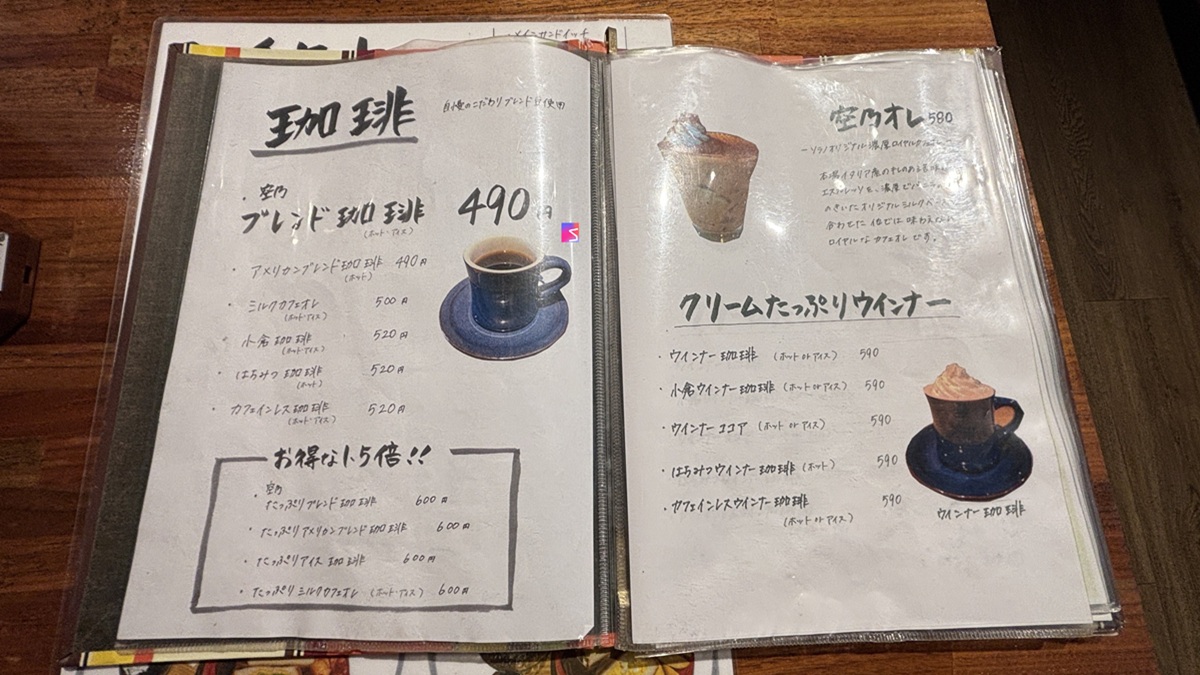 メインサンドイッチ
珈琲
自慢のこだわりブレンド豆使用
・空乃
ブレンド珈琲 490円
(ホット・アイス)
・アメリカンブレンド珈琲 490円
(ホット)
・ミルクカフェオレ 500円
(ホット・アイス)
・小倉珈琲 520円
(ホット・アイス)
・はちみつ珈琲 520円
(ホット)
・カフェインレス珈琲 520円
(ホット・アイス)
お得な1.5倍!!
・空乃
たっぷりブレンド珈琲 600円
・たっぷりアメリカンブレンド珈琲 600円
・たっぷりアイス珈琲 600円
・たっぷりミルクカフェオレ (ホット・アイス) 600円
空乃オレ 580
ーソラノオリジナル濃厚ロイヤル
本場イタリア産の
エスプレッソと、濃厚で
のきいたオリジナルミルク
合わせた 他では味わえ
ロイヤルなカフェオレです。
クリームたっぷりウインナー
・ウインナー珈琲 (ホット or アイス) 590
・小倉ウインナー珈琲 (ホット or アイス) 590
・ウインナーココア (ホット or アイス) 590
・はちみつウインナー珈琲 (ホット) 590
・カフェインレスウインナー珈琲 590
(ホット or アイス)
ウインナー珈琲